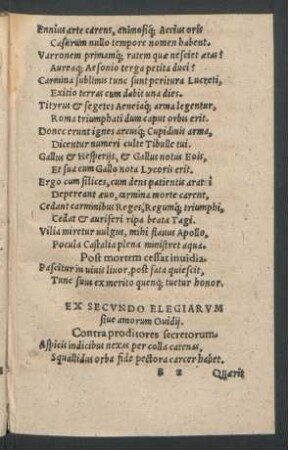 Ennius arte carens, animosiq́; Accius oris
Casurum nullo tempore nomen habent.
Varronem primamq́; ratem quæ nesciet ætas?
Aureaq́; Aesonio terga petita duci?
Carmina sublimis tunc sunt peritura Lucreti,
Exitio terras cum dabit una dies.
Tityrus & segetes Aeneiaq́; arma legentur,
Roma triumphati dum caput orbis erit.
Donec erunt ignes arcusq́; Cupidinis arma,
Dicentur numeri culte Tibulle tui.
Gallus & Hesperijs, & Gallus notus Eois,
Et sua cum Gallo nota Lycoris erit.
Ergo cum silices, cum dens patientis aratri
Depereant æuo, carmina morte carent,
Cedant carminibus Reges, Regumq́; triumphi,
Cedat & auriferi ripa beata Tagi.
Vilia miretur uulgus, mihi flauus Apollo,
Pocula Castalia plena ministret aqua.
Post mortem cessat inuidia.
Pascitur in uiuis liuor, post fata quiescit,
Tunc suus ex merito quenq́; tuetur honor.
EX SECVNDO ELEGIARVM
siue amorum Ouidij.
Contra proditores secretorum.
Aspicis indicibus nexas per colla catenas,
Squallidus orba fide pectora carcer habet.
B 2 Quærit